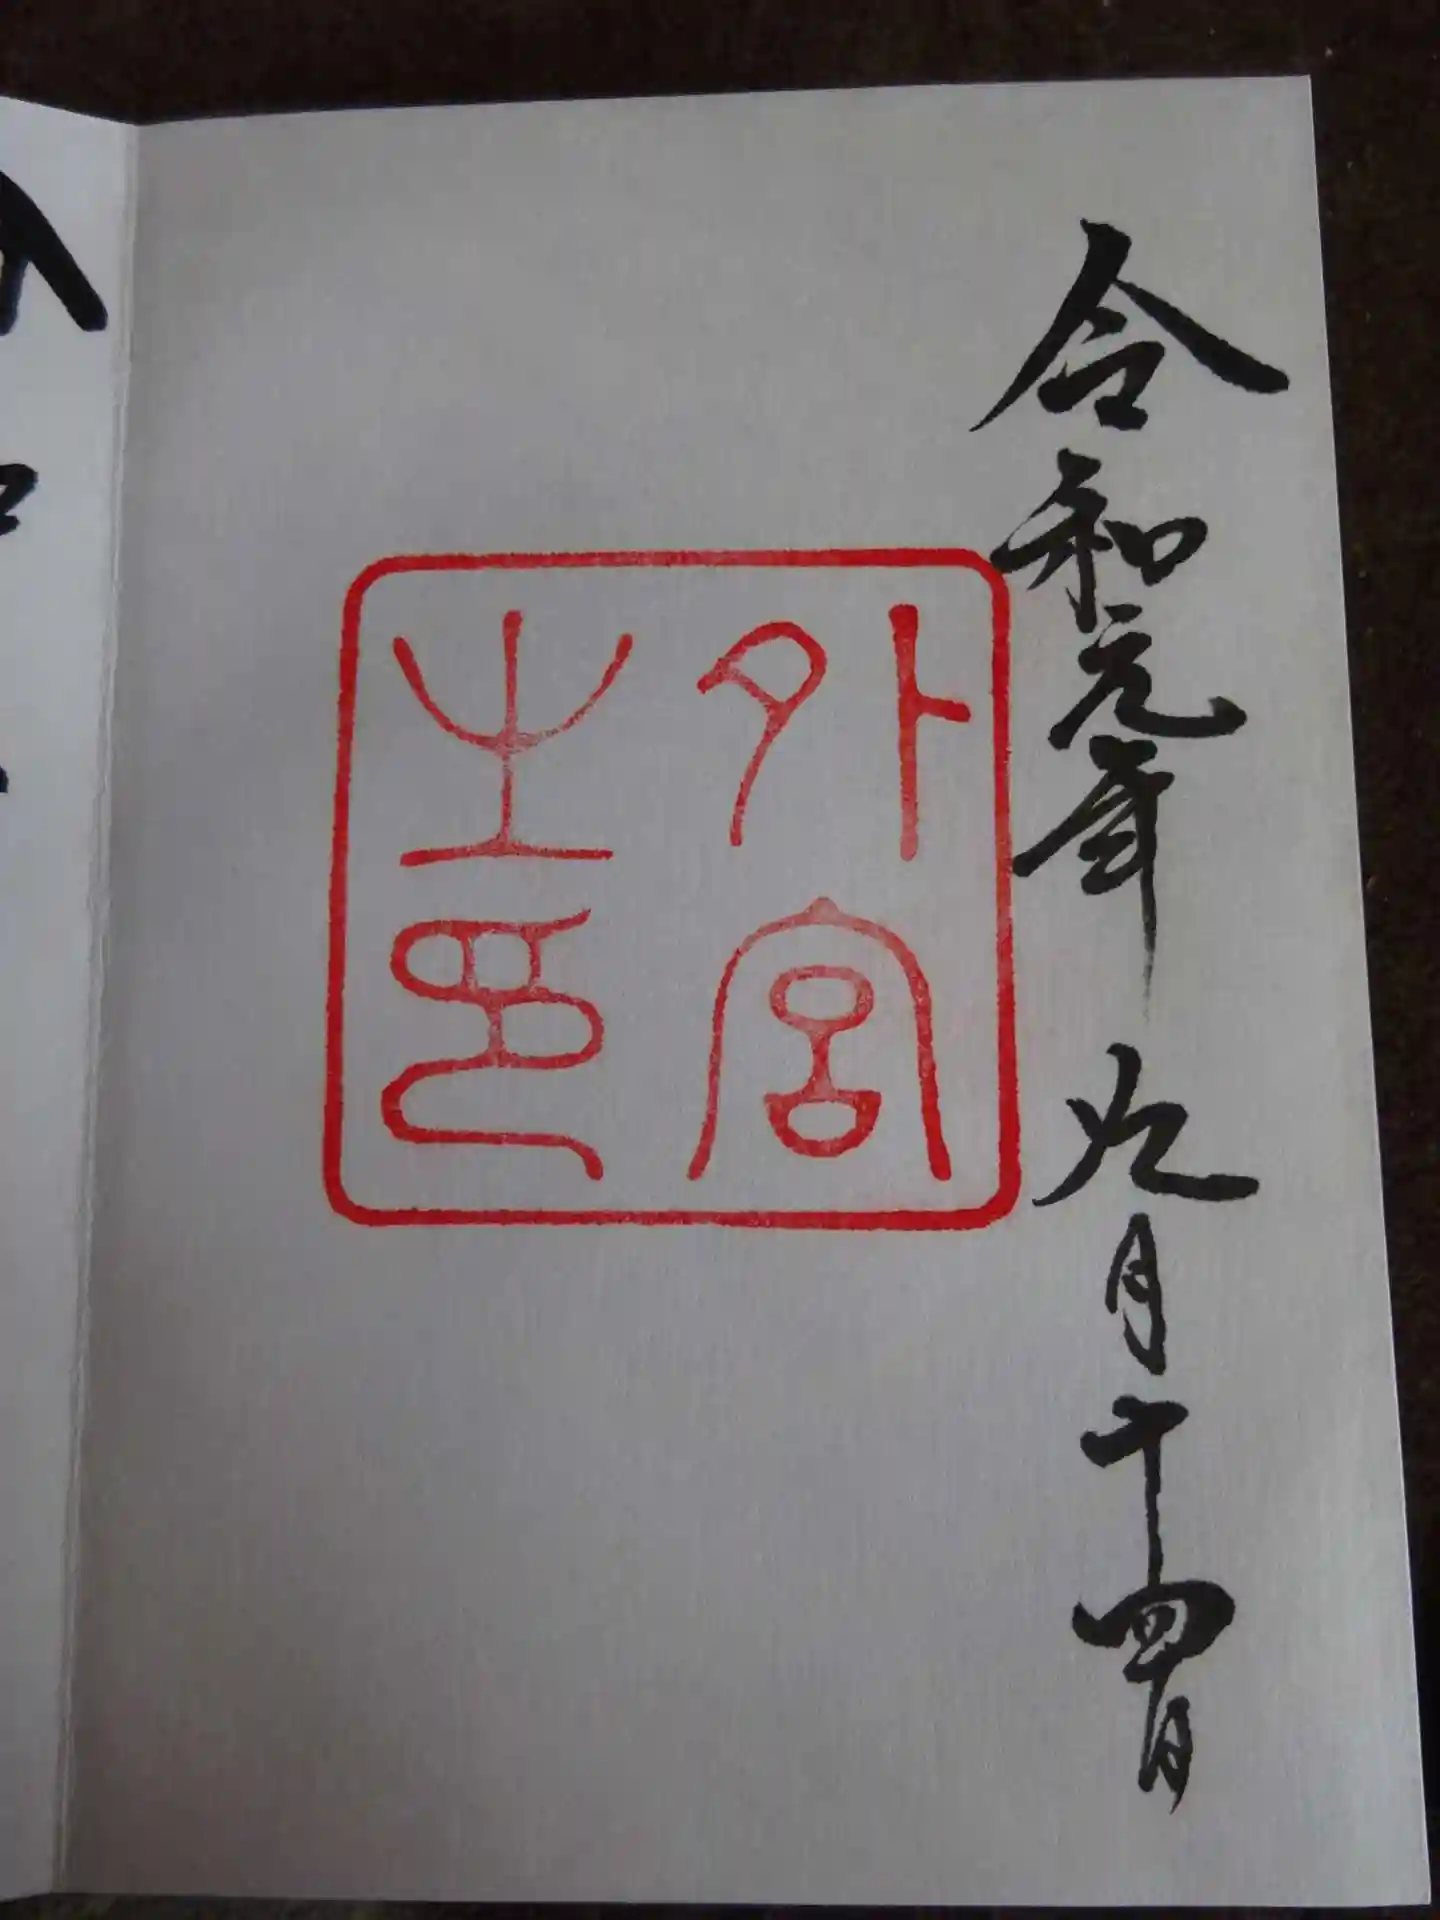 令和元年 九月十四日
外宮
之印